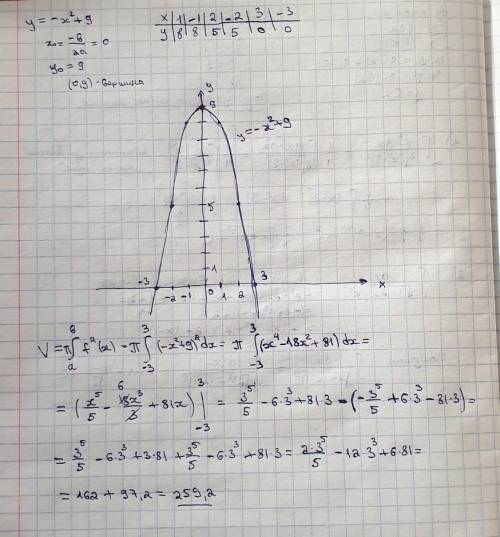 y = -x²+9
x₀ = -b/2a = 0
y₀ = 9
(0,9) - вершина
x | 1 | -1 | 2 | -2 | 3 | -3
y | 8 | 8 | 5 | 5 | 0 | 0
y
9
y=-x²+9
5
1
-3 -2 -1 0 1 2 3 x
V = π∫ₐᵇ f²(x) = π∫₋₃³ (-x²+9)² dx = π ∫₋₃³ (x⁴-18x²+81) dx =
= (x⁵/5 - 18x³/3 + 81x) |₋₃³ = 3⁵/5 - 6·3³ + 81·3 - (-3⁵/5 + 6·3³ - 81·3) =
= 3⁵/5 - 6·3³ + 3·81 + 3⁵/5 - 6·3³ + 81·3 = 2·3⁵/5 - 12·3³ + 6·81 =
= 162 + 97,2 = 259,2